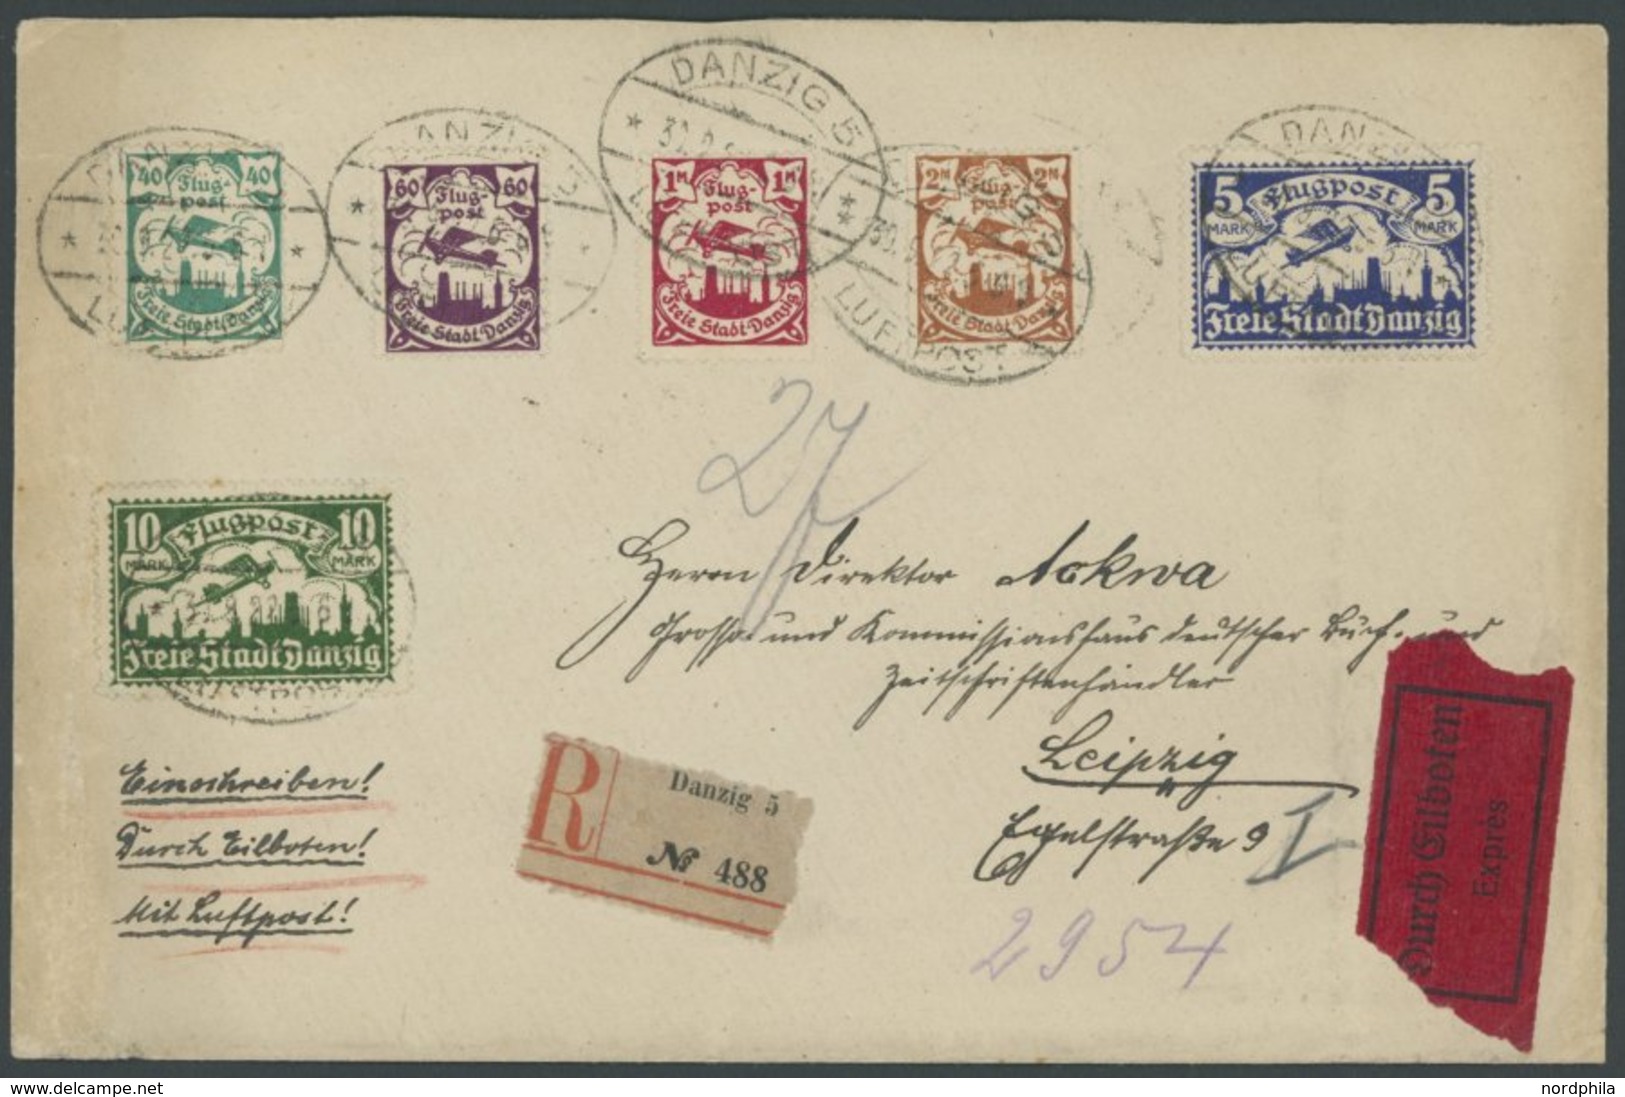 DANZIG 5
LUFTPOST
40 40
Flug-
post
Freie Stadt Danzig
60 60
Flug-
post
Freie Stadt Danzig
1M 1M
Flug-
post
Freie Stadt Danzig
2M 2M
Flug-
post
Freie Stadt Danzig
5 5
MARK MARK
Flugpost
Freie Stadt Danzig
10 10
MARK MARK
Flugpost
Freie Stadt Danzig
27
Herrn Direktor Askwa
Grosso und Kommissionshaus deutscher Buch- und
Zeitschriftenhändler
Leipzig
Egelstraße 9
I
2954
Einschreiben!
Durch Eilboten!
Mit Luftpost!
R
Danzig 5
№ 488
Durch Eilboten
Exprès
www.delcampe.net
nordphila